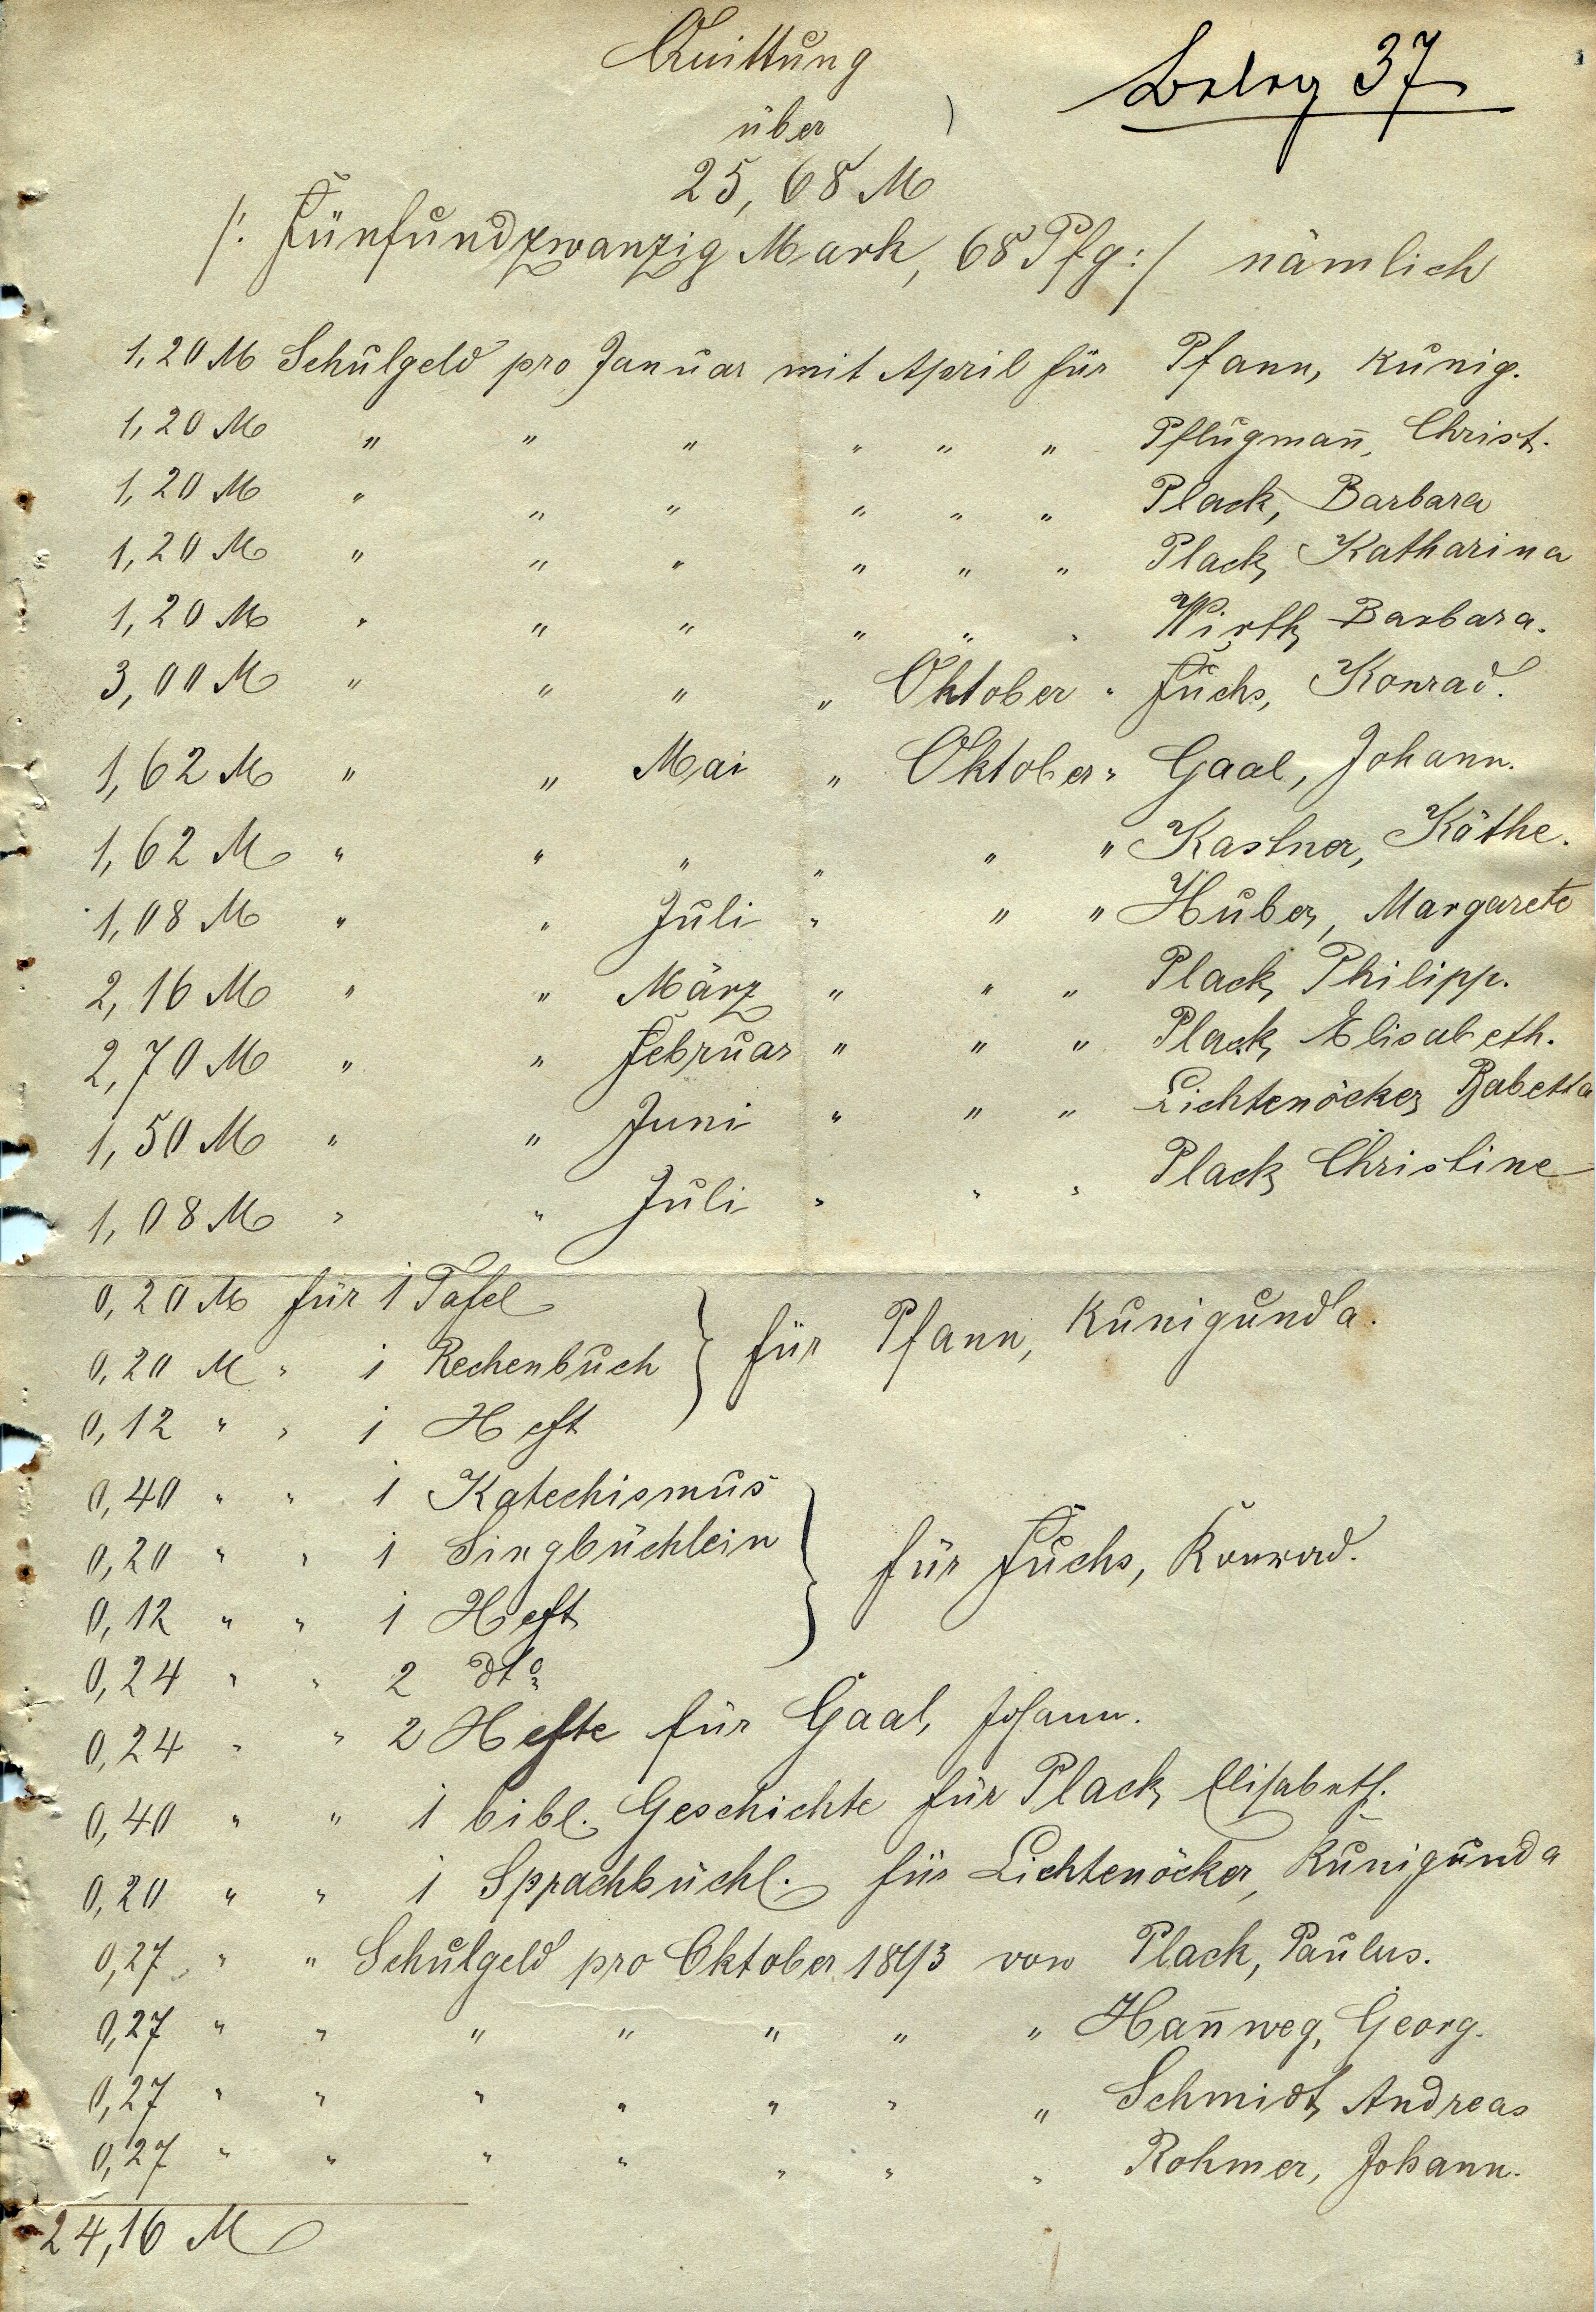 Quittung
Beleg 37
über
25,68 M
/: Fünfundzwanzig Mark, 68 Pfg :/ nämlich
1,20 M Schulgeld pro Januar mit April für Pfann, Kunig.
1,20 M " " " " " " Pflugmañ, Christ.
1,20 M " " " " " " Plack, Barbara
1,20 M " " " " " " Plack, Katharina
1,20 M " " " " " " Wirth, Barbara.
3,00 M " " " " Oktober " Fuchs, Konrad.
1,62 M " " Mai " Oktober " Gaal, Johann.
1,62 M " " " " " " Kastner, Käthe.
1,08 M " " Juli " " " Huber, Margarete
2,16 M " " März " " " Plack, Philipp.
2,70 M " " Februar " " " Plack, Elisabeth.
1,50 M " " Juni " " " Lichtenöcker, Babetta
1,08 M " " Juli " " " Plack, Christine
0,20 M für 1 Tafel
0,20 M " 1 Rechenbuch } für Pfann, Kunigunda.
0,12 " " 1 Heft
0,40 " " 1 Katechismus
0,20 " " 1 Singbüchlein } für Fuchs, Konrad.
0,12 " " 1 Heft
0,24 " " 2 dto
0,24 " " 2 Hefte für Gaal, Johann.
0,40 " " 1 bibl. Geschichte für Plack, Elisabeth.
0,20 " " 1 Sprachbüchl. für Lichtenöcker, Kunigunda
0,27 " " Schulgeld pro Oktober 1893 von Plack, Paulus.
0,27 " " " " " " " Hañweg, Georg.
0,27 " " " " " " " Schmidt, Andreas
0,27 " " " " " " " Rohmer, Johann.
24,16 M